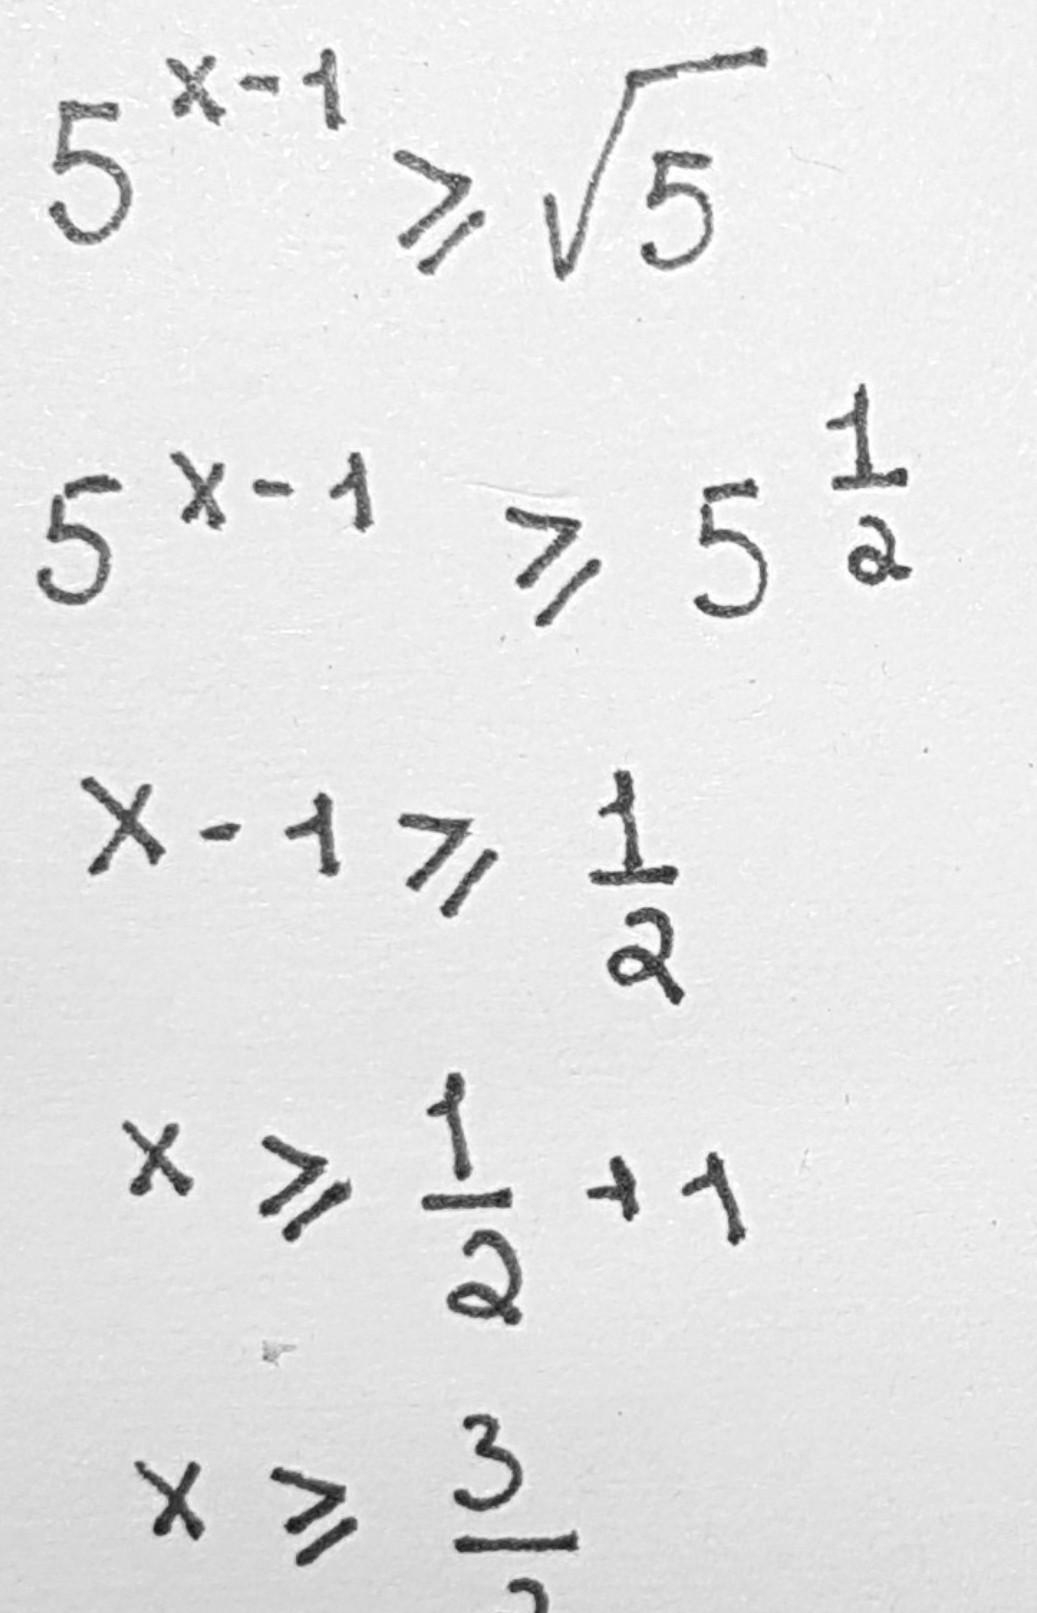 5^{x-1} ⩾ √5
5^{x-1} ⩾ 5^{1/2}
x - 1 ⩾ 1/2
x ⩾ 1/2 + 1
x ⩾ 3/2